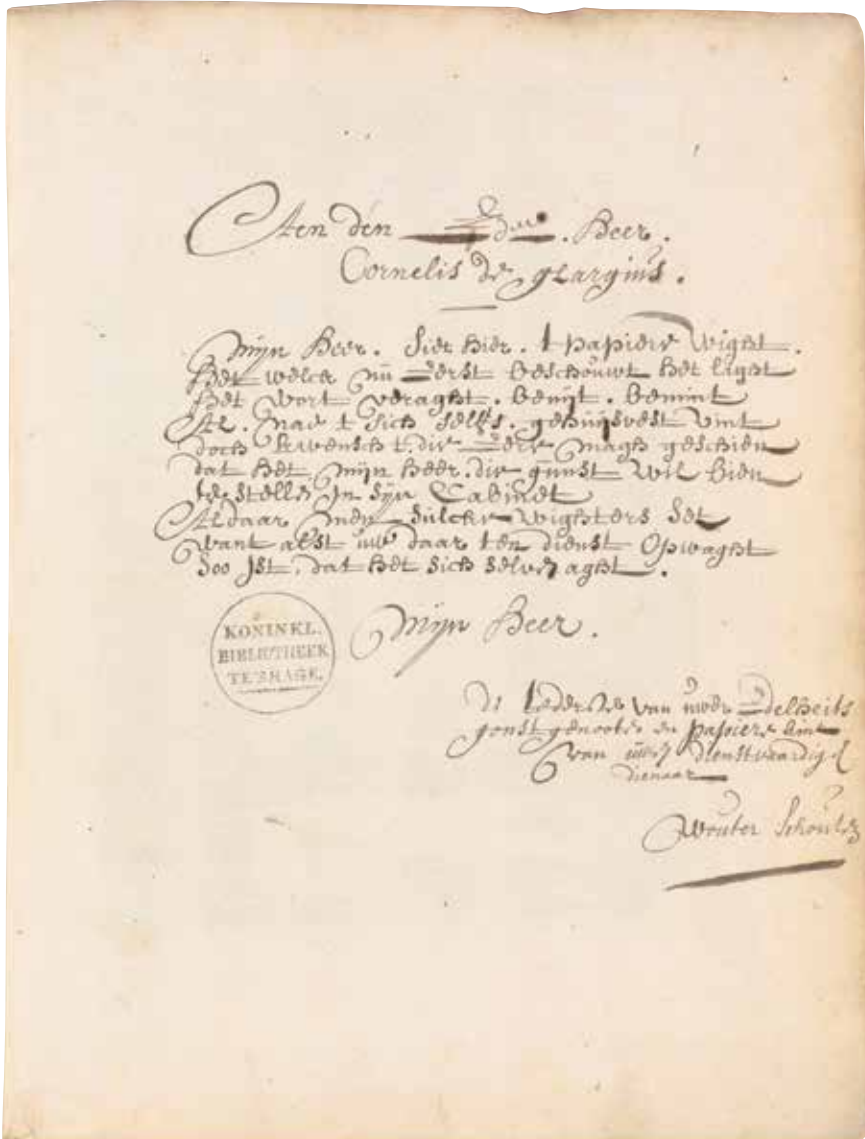 Aen den Heer.
Cornelis de glargius.
Mijn Heer. Siet hier. t papiere wight.
Het welck nu Eerst beschouwt het light
het wort veraght. benijt. bemint
Al. nae t sich selfs. gehuijsvest vint
doch k wensch t. die Eere magh geschien
dat het mijn heer. die gunst wil bien
te stellen In sijn Cabinet
Aldaar men sulcke wighters set
want alst uw daar ten dienst Opwaght
Soo Jst. dat het sich selven aght.
KONINKL.
BIBLIOTHEEK
TE'SHAGE.
Mijn Heer.
van uwer Edelheits
gonst genooten en papiere
van uwen dienstvaardigen
dienaar
Wouter Schouten